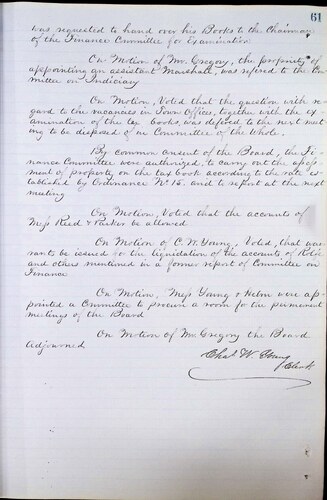 61
was requested to hand over his Books to the Chairman
of the Finance Committee for Examination
On Motion of Mr. Gregory, the propriety of
appointing an assistant Marshall, was refered to the Com
mittee on Judiciary
On Motion, Voted that the question with re
gard to the vacancies in Town Offices, together with the ex-
amination of the tax books, was defered to the next meet
ing to be disposed of in Committee of the whole.
By common consent of the Board, the Fi-
nance Committee were authorized, to carry out the assess
ment of property on the tax book according to the rate es-
tablished by Ordinance No 15. and to report at the next
meeting
On Motion, Voted that the accounts of
Mess Reed & Parker be allowed
On Motion of C. W. Young, Voted, that war-
rants be issued for the liquidation of the accounts of
and others mentioned in a former report of Committee on
Finance
On Motion, Mess Young & Helm were ap-
pointed a Committee to procure a room for the permanent
meetings of the Board
On Motion of Mr. Gregory the Board
Adjourned
Chas W. Young
Clerk